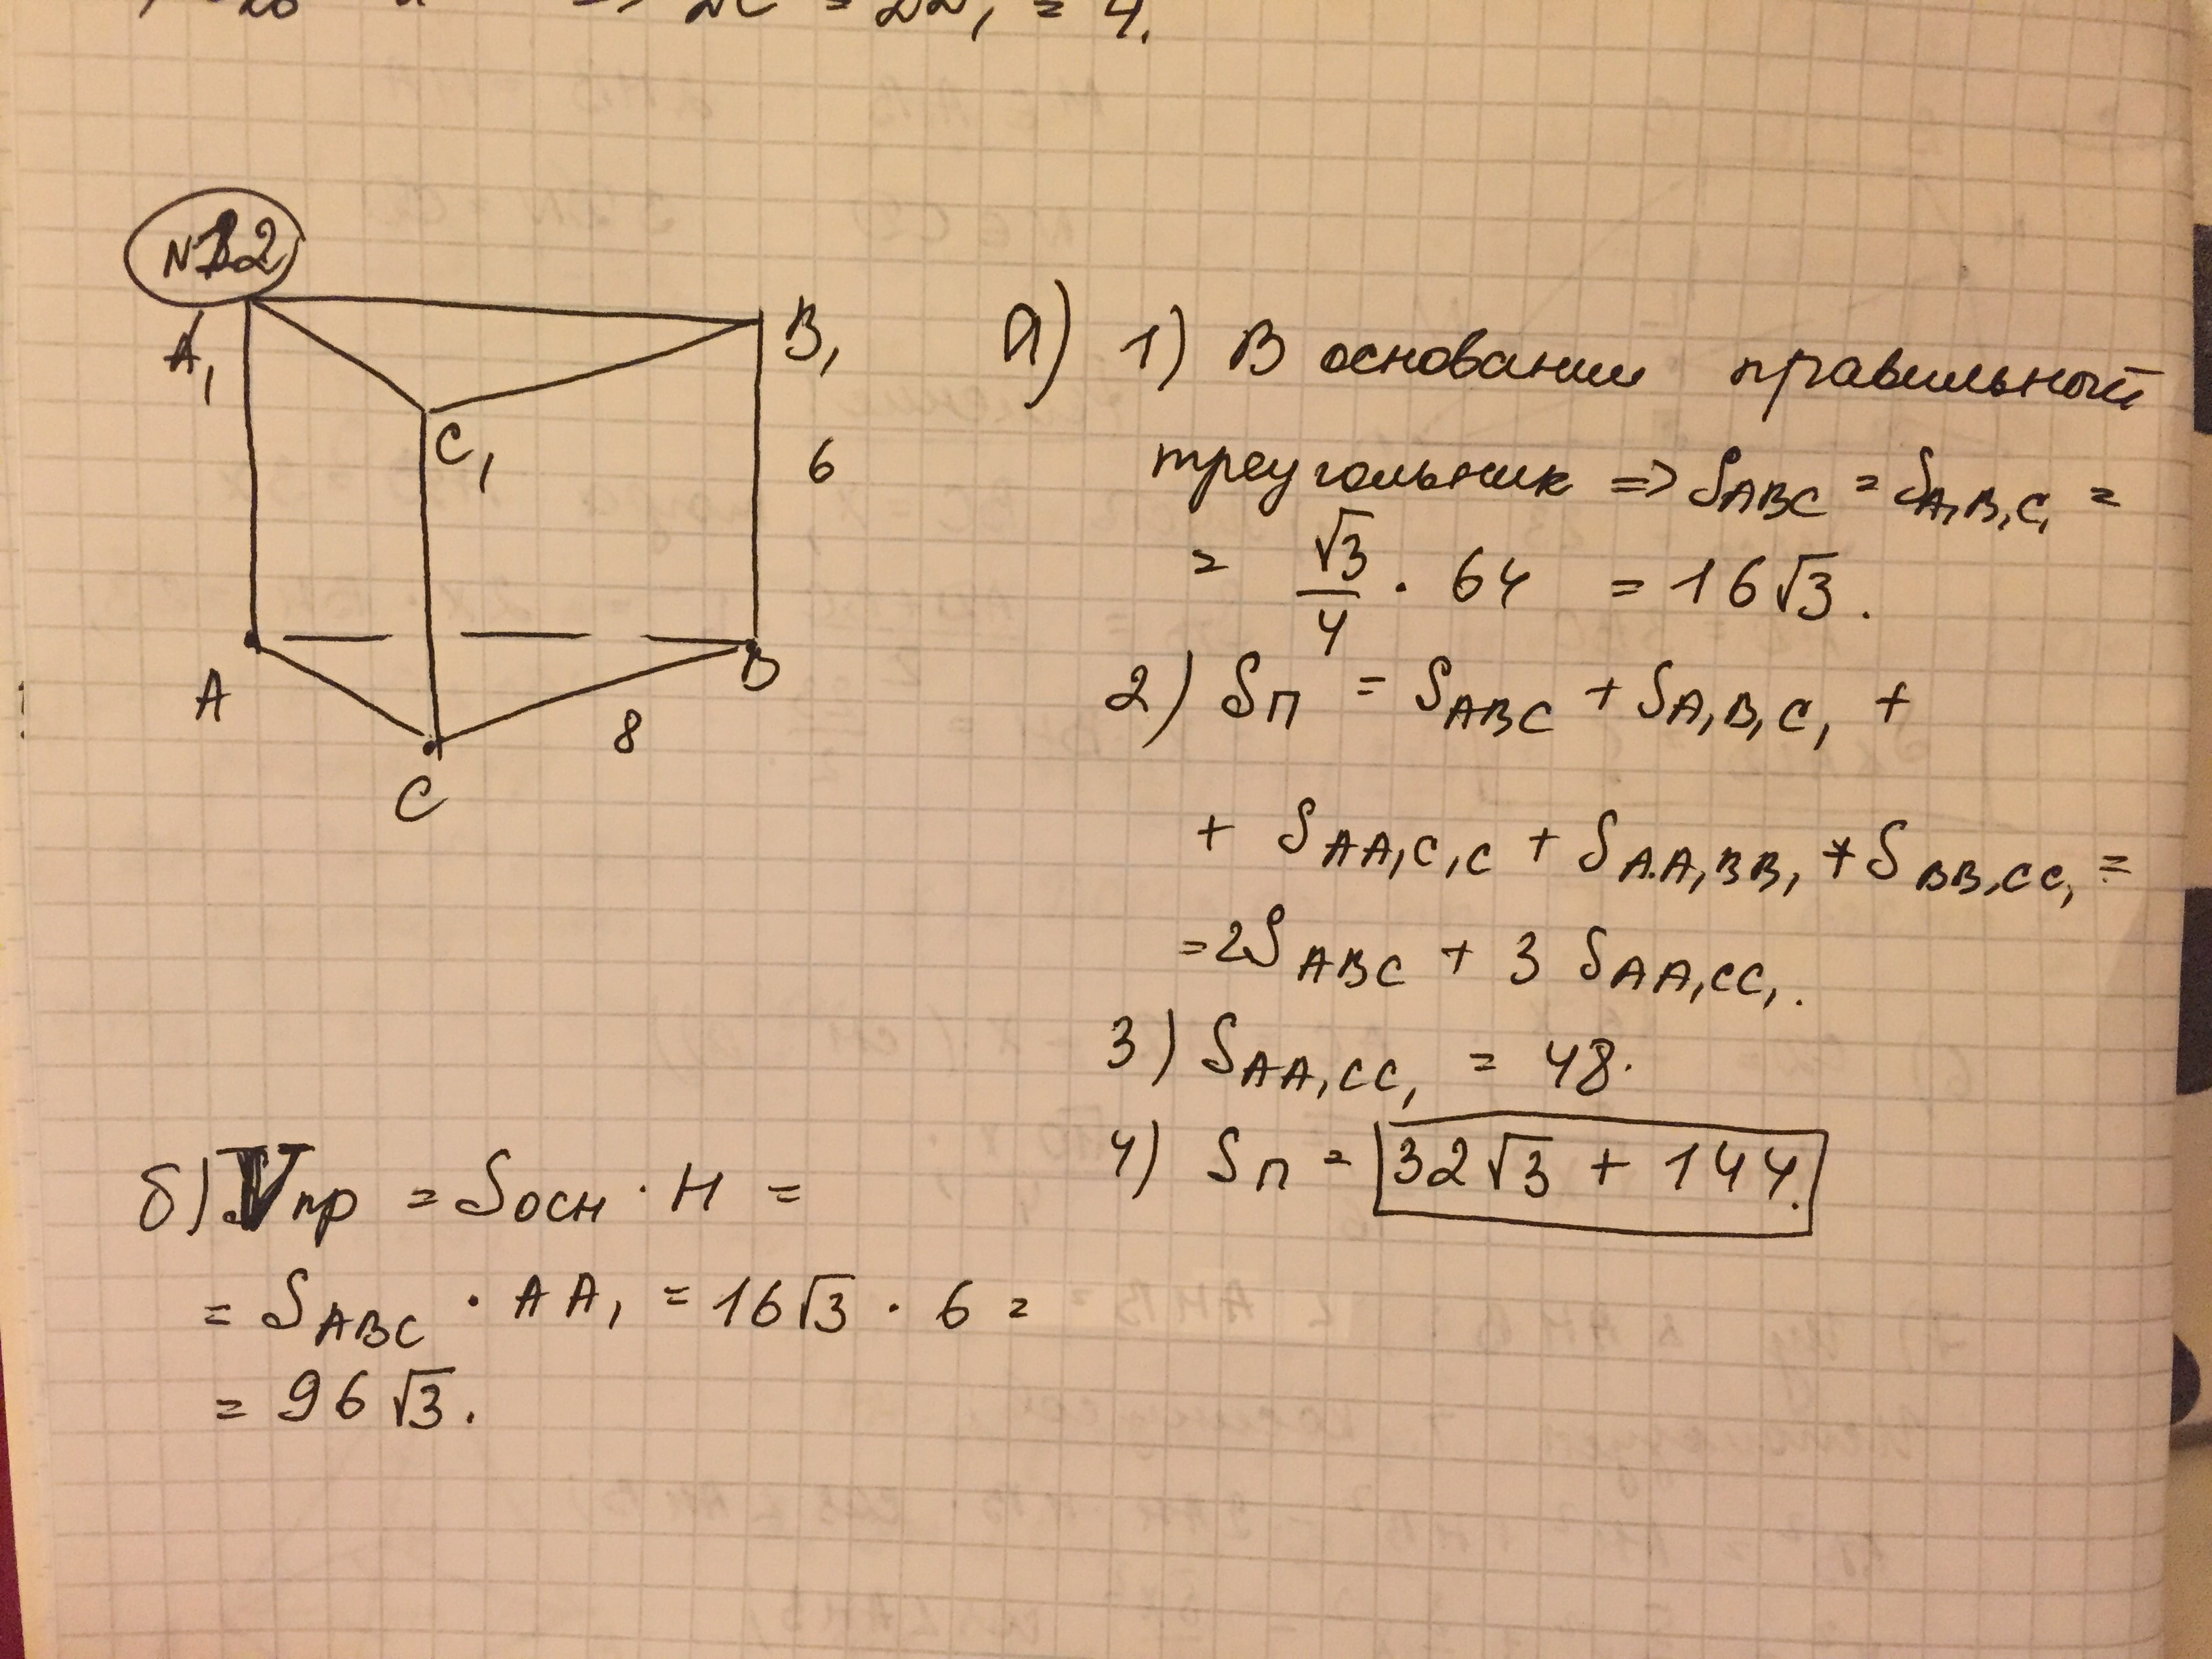 => = 4.
N 2
A₁
B₁
C₁
6
A
B
C
8
а) 1) В основании правильный
треугольник => S_ABC = S_A₁B₁C₁ =
= √3/4 · 64 = 16√3.
2) Sп = S_ABC + S_A₁B₁C₁ +
+ S_AA₁C₁C + S_AA₁BB₁ + S_BB₁CC₁ =
= 2S_ABC + 3 S_AA₁CC₁.
3) S_AA₁CC₁ = 48.
4) Sп = 32√3 + 144.
б) Vпр = Sосн · H =
= S_ABC · AA₁ = 16√3 · 6 =
= 96√3.